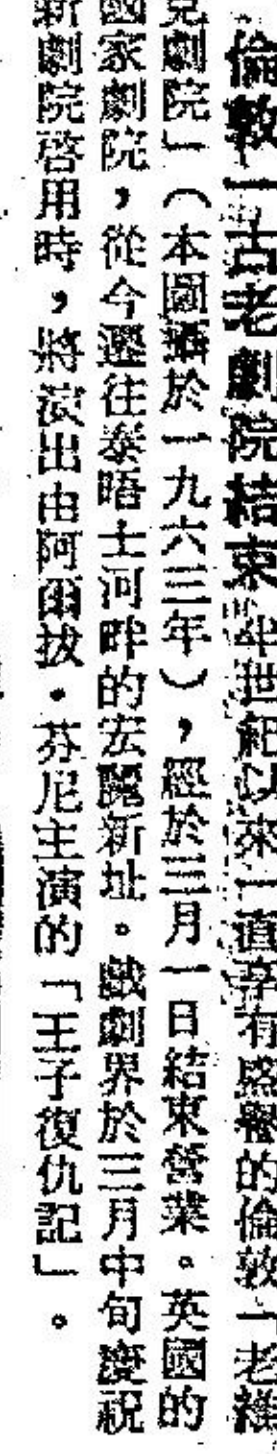 倫敦一古老劇院結束 半世紀以來一直享有盛譽的倫敦「老維
克劇院」（本圖攝於一九六三年），經於三月一日結束營業。英國的
國家劇院，從今遷往泰晤士河畔的宏麗新址。戲劇界於三月中旬慶祝
新劇院啓用時，將演出由阿爾拔・芬尼主演的「王子復仇記」。